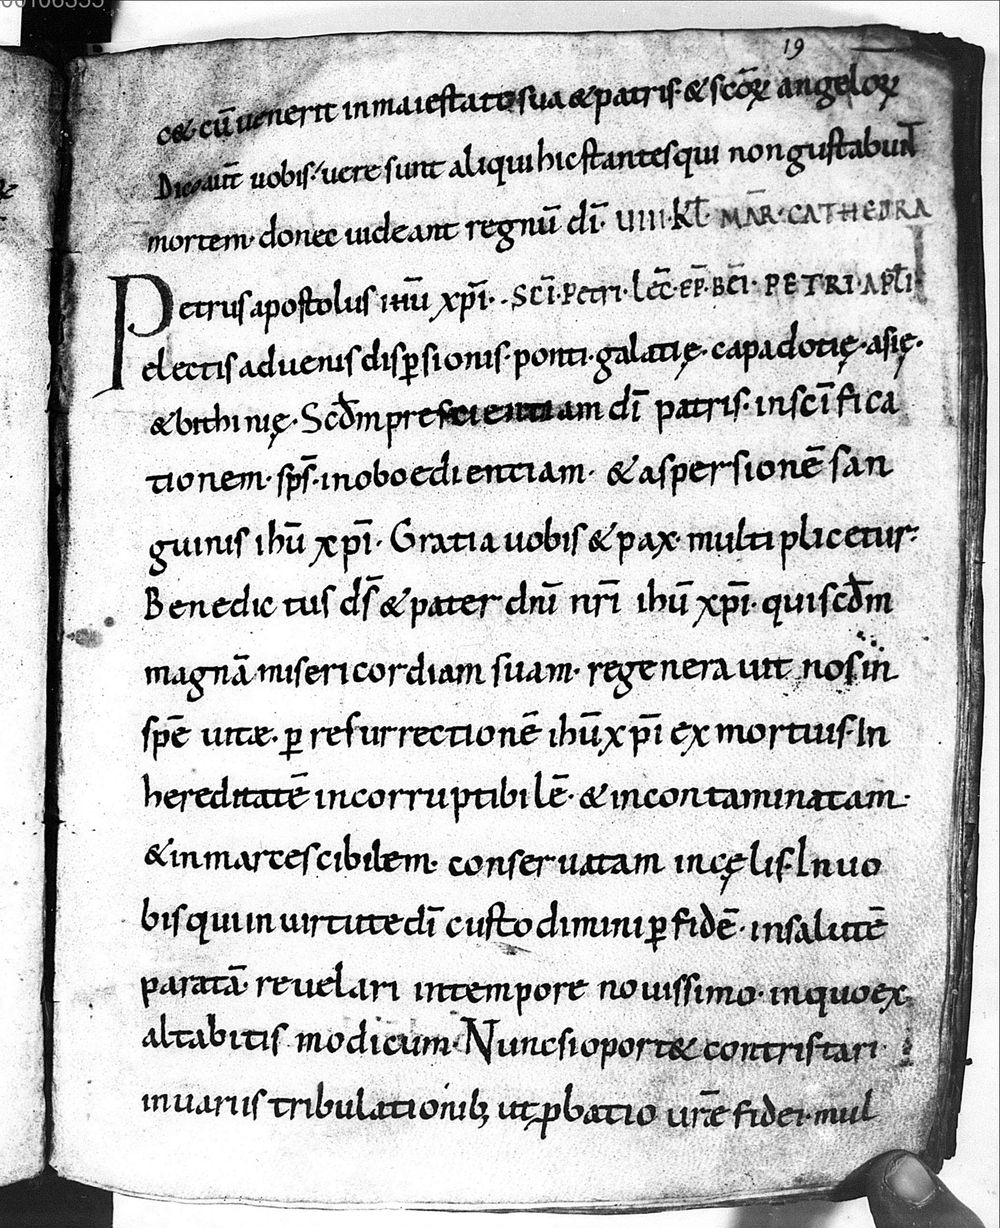 19
c& cū uenerit inmaiestate sua & patris· & scōꝝ angeloꝝ
Dico aut̄ uobis· uere sunt aliqui hic stantes qui non gustabunt
mortem· donec uideant regnū dī· uiiii· kl̄· MAR̄· CATHEDRA
Petrus apostolus ihū xp̄i· SC̄I· Petri· lēc· EP̄· BĒI· PETRI· APL̄I·
electis aduenis disꝑsionis· ponti· galatię· capadotię· asię·
& bithinię· Scd̄m prescientiam dī patris· in scīfica
tionem· sp̄s· in oboedientiam· & aspersionē san
guinis ihū xp̄i· Gratia uobis & pax· multiplicetur·
Benedictus ds̄ & pater dn̄i nr̄i ihū xp̄i· qui scd̄m
magnā misericordiam suam· regenerauit nos in
spē uitæ· ꝑ resurrectionē ihū xp̄i ex mortuis· In
hereditatē incorruptibilē· & incontaminatam·
& inmarcescibilem· conseruatam in cęlis· In uo
bis qui in uirtute dī custodimini ꝑ fidē· in salutē
paratā· reuelari in tempore nouissimo· in quo ex
altabitis modicum· Nunc si oport& contristari·
in uariis tribulationibꝫ ut ꝓbatio urǣ fidei· mul